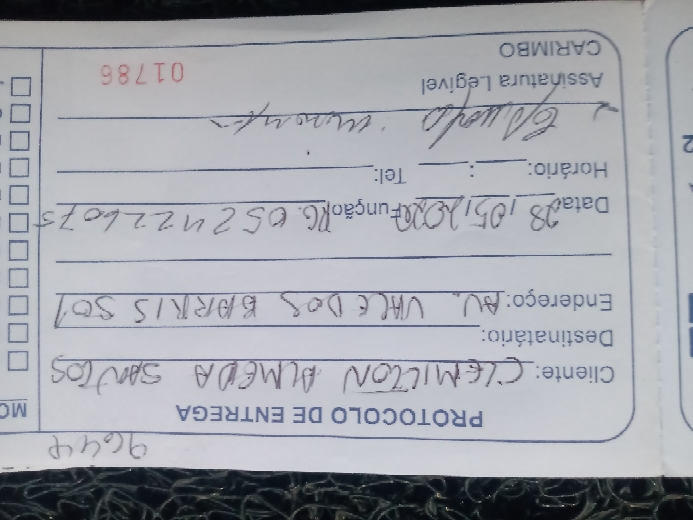 9644
PROTOCOLO DE ENTREGA
Cliente: CLEMILTON ALMEDA SANTOS
Destinatário:
Endereço: AV. VALE DOS BARRIS 501
Data 28/05/2020 Função RG. 0524226075
Horário: : Tel:
Assinatura Legível
CARIMBO
01786
MO
2